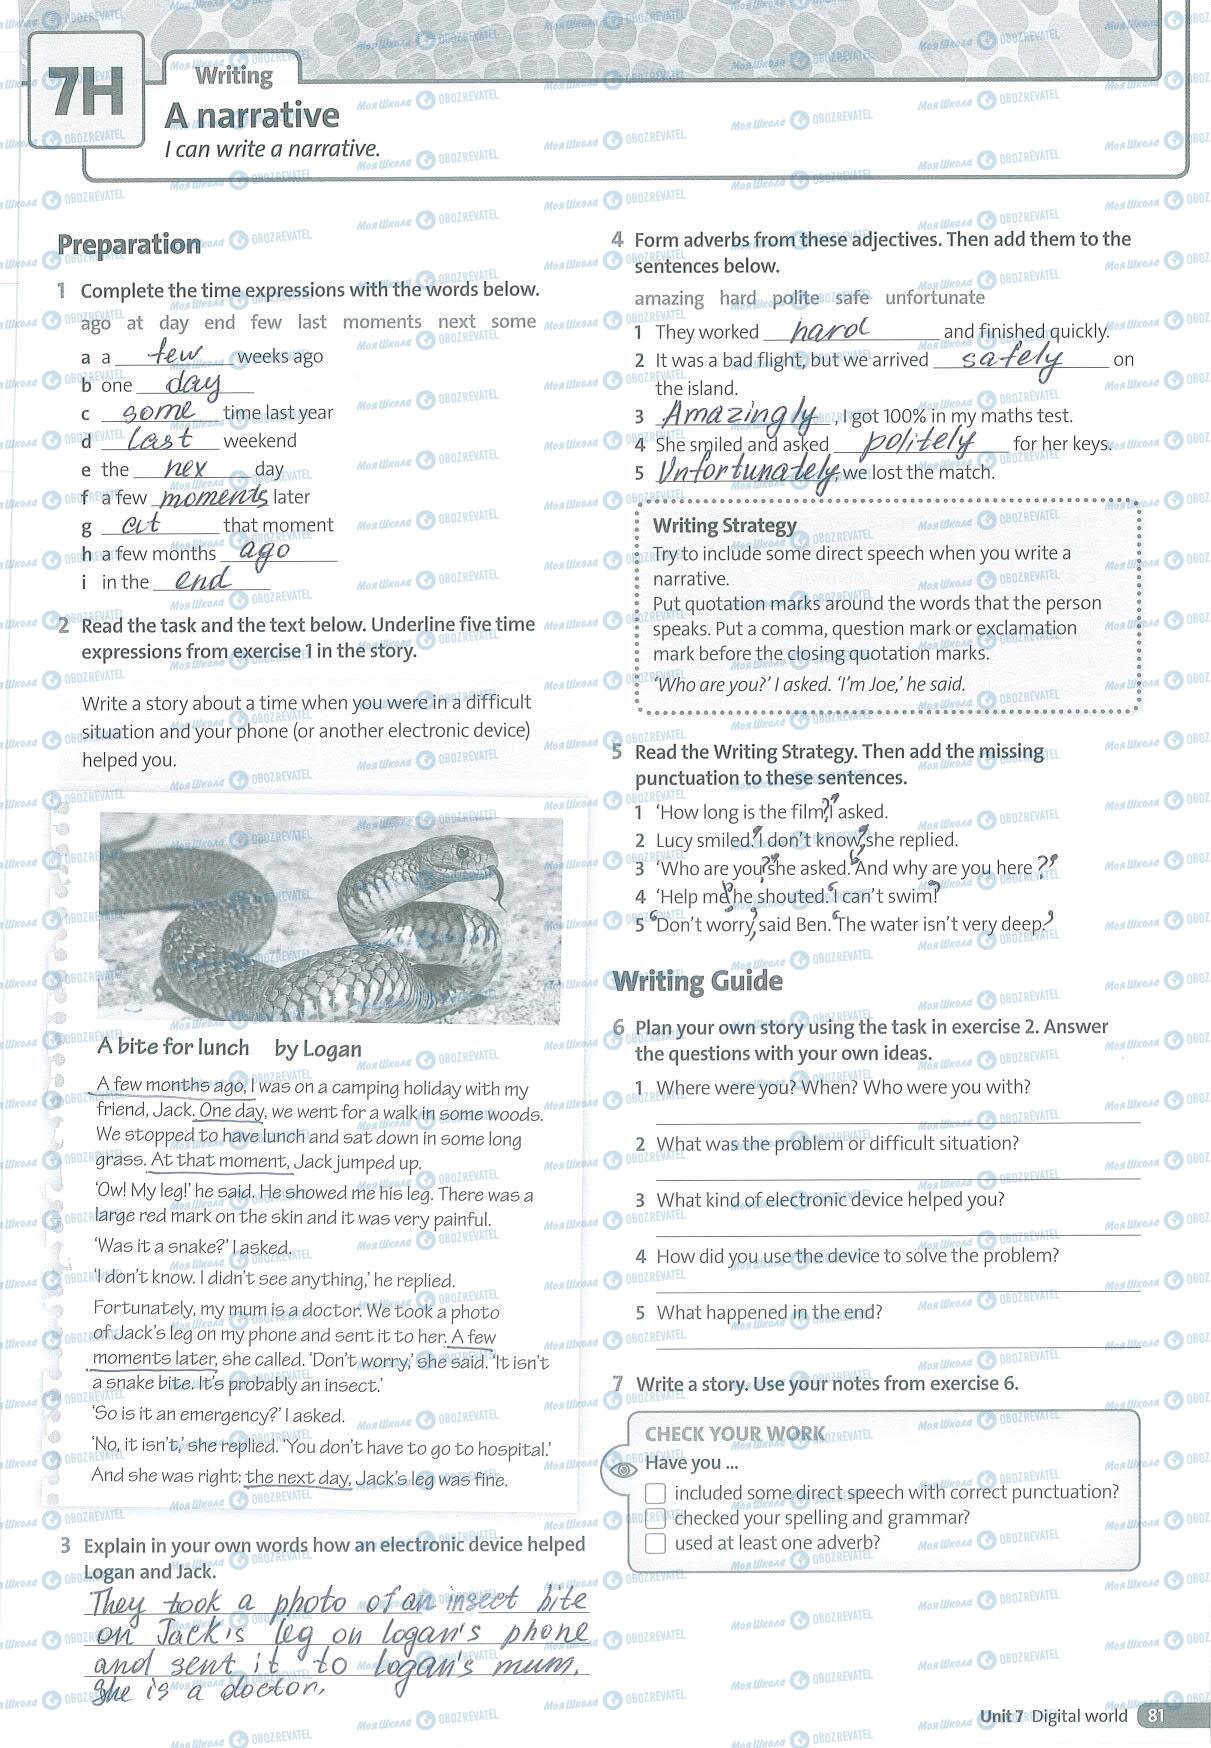 7H
Writing
A narrative
I can write a narrative.
Preparation
1 Complete the time expressions with the words below.
ago at day end few last moments next some
a a few weeks ago
b one day
c some time last year
d last weekend
e the nex day
f a few moments later
g at that moment
h a few months ago
i in the end
2 Read the task and the text below. Underline five time
expressions from exercise 1 in the story.
Write a story about a time when you were in a difficult
situation and your phone (or another electronic device)
helped you.
A bite for lunch by Logan
A few months ago, I was on a camping holiday with my
friend, Jack. One day, we went for a walk in some woods.
We stopped to have lunch and sat down in some long
grass. At that moment, Jack jumped up.
‘Ow! My leg!’ he said. He showed me his leg. There was a
large red mark on the skin and it was very painful.
‘Was it a snake?’ I asked.
‘I don’t know. I didn’t see anything,’ he replied.
Fortunately, my mum is a doctor. We took a photo
of Jack’s leg on my phone and sent it to her. A few
moments later, she called. ‘Don’t worry,’ she said. ‘It isn’t
a snake bite. It’s probably an insect.’
‘So is it an emergency?’ I asked.
‘No, it isn’t,’ she replied. ‘You don’t have to go to hospital.’
And she was right: the next day, Jack’s leg was fine.
3 Explain in your own words how an electronic device helped
Logan and Jack.
They took a photo of an insect bite
on Jack's leg on Logan's phone
and sent it to Logan's mum.
She is a doctor.
4 Form adverbs from these adjectives. Then add them to the
sentences below.
amazing hard polite safe unfortunate
1 They worked hard and finished quickly.
2 It was a bad flight, but we arrived safely on
the island.
3 Amazingly, I got 100% in my maths test.
4 She smiled and asked politely for her keys.
5 Unfortunately, we lost the match.
Writing Strategy
Try to include some direct speech when you write a
narrative.
Put quotation marks around the words that the person
speaks. Put a comma, question mark or exclamation
mark before the closing quotation marks.
‘Who are you?’ I asked. ‘I’m Joe,’ he said.
5 Read the Writing Strategy. Then add the missing
punctuation to these sentences.
1 ‘How long is the film?’ I asked.
2 Lucy smiled. ‘I don’t know,’ she replied.
3 ‘Who are you?’ she asked. ‘And why are you here?’
4 ‘Help me!’ he shouted. ‘I can’t swim!’
5 ‘Don’t worry,’ said Ben. ‘The water isn’t very deep.’
Writing Guide
6 Plan your own story using the task in exercise 2. Answer
the questions with your own ideas.
1 Where were you? When? Who were you with?
2 What was the problem or difficult situation?
3 What kind of electronic device helped you?
4 How did you use the device to solve the problem?
5 What happened in the end?
7 Write a story. Use your notes from exercise 6.
CHECK YOUR WORK
Have you ...
included some direct speech with correct punctuation?
checked your spelling and grammar?
used at least one adverb?
Unit 7 Digital world 81
Моя Школа OBOZREVATEL